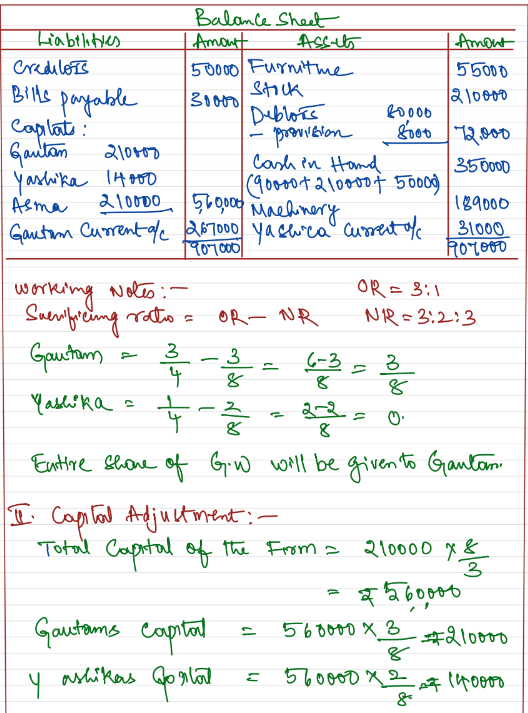 Balance Sheet
Liabilities Amount Assets Amount
Creditors 50000 Furniture 55000
Bills payable 30000 Stock 210000
Capitals: Debtors 80,000
Gautam 210000 - provision 8000 72,000
Yashika 14000 Cash in Hand 350000
(90000+210000+50000)
Asma 210000 5,60,000 Machinery 189000
Gautam Current a/c 267000 Yashica Current a/c 31000
907000 907000
Working Notes:- OR = 3:1
Sacrificing ratio = OR - NR NR = 3:2:3
Gautam = 3/4 - 3/8 = 6-3/8 = 3/8
Yashika = 1/4 - 2/8 = 2-2/8 = 0.
Entire share of G.W will be given to Gautam.
II. Capital Adjustment:-
Total Capital of the Firm = 210000 × 8/3
= ₹ 560000
Gautams Capital = 560000 × 3/8 = ₹ 210000
Yashikas Capital = 560000 × 2/8 = ₹ 140000